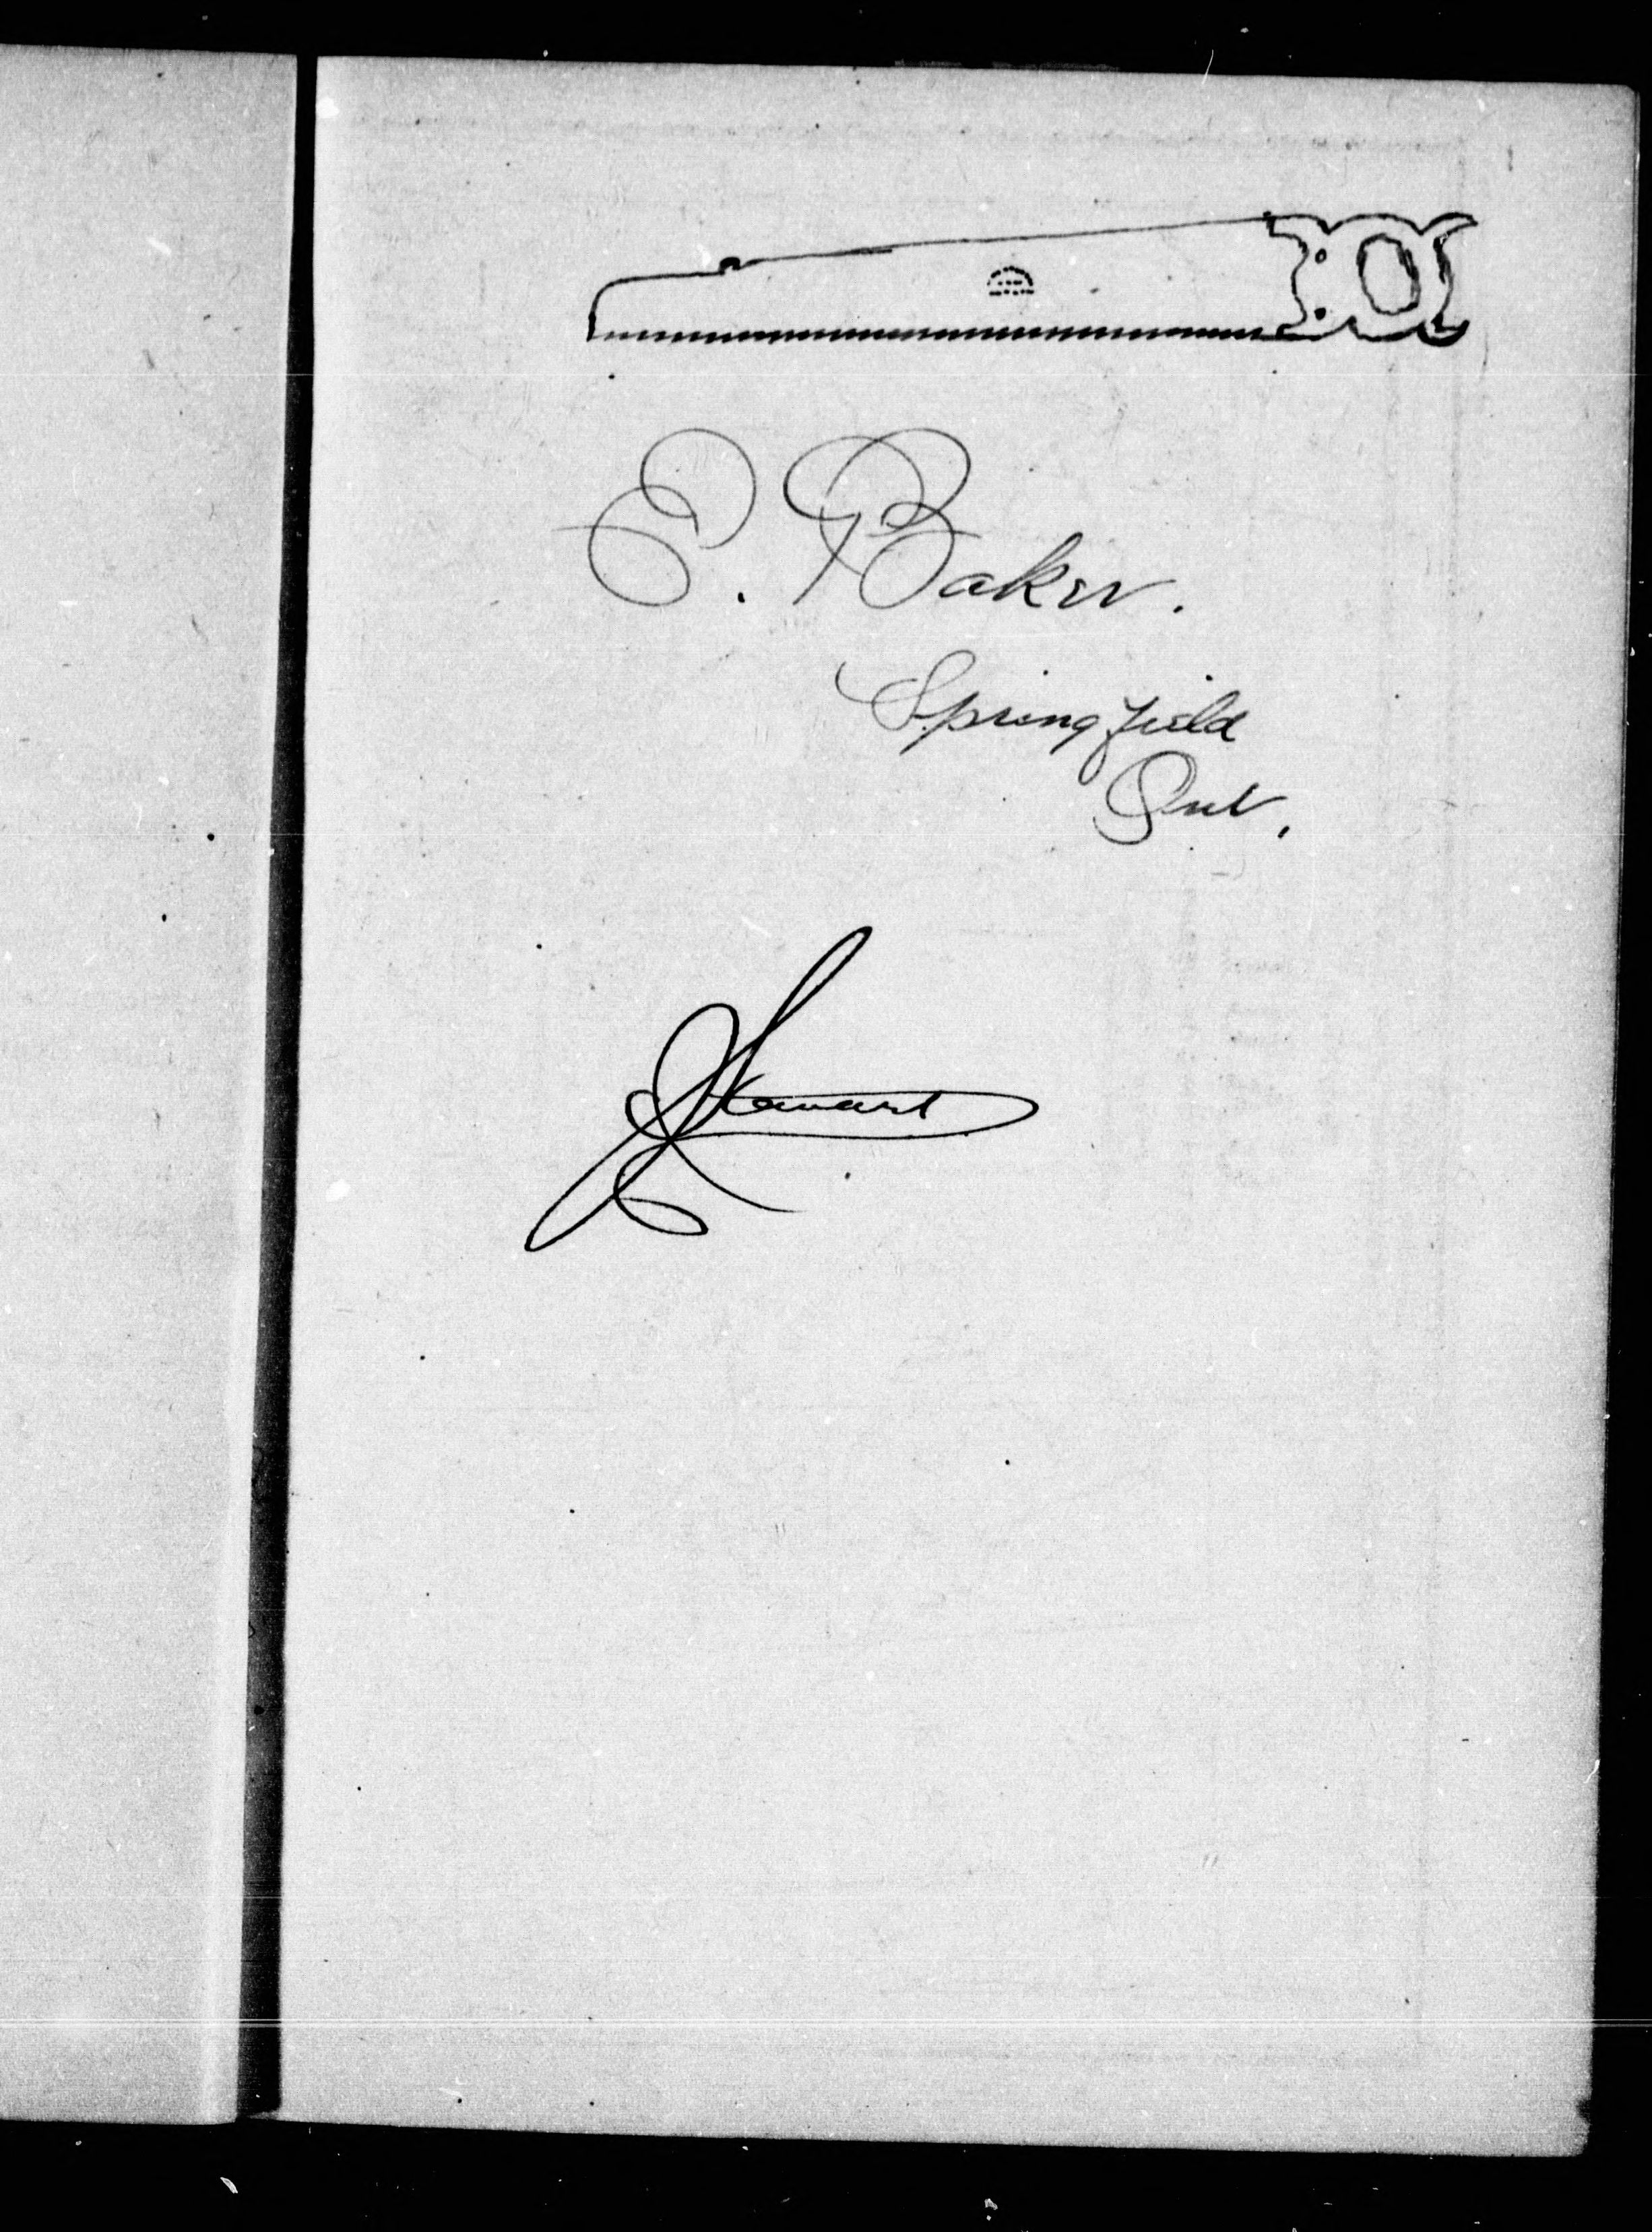 E. Baker.
Springfield
Ont.
Stewart